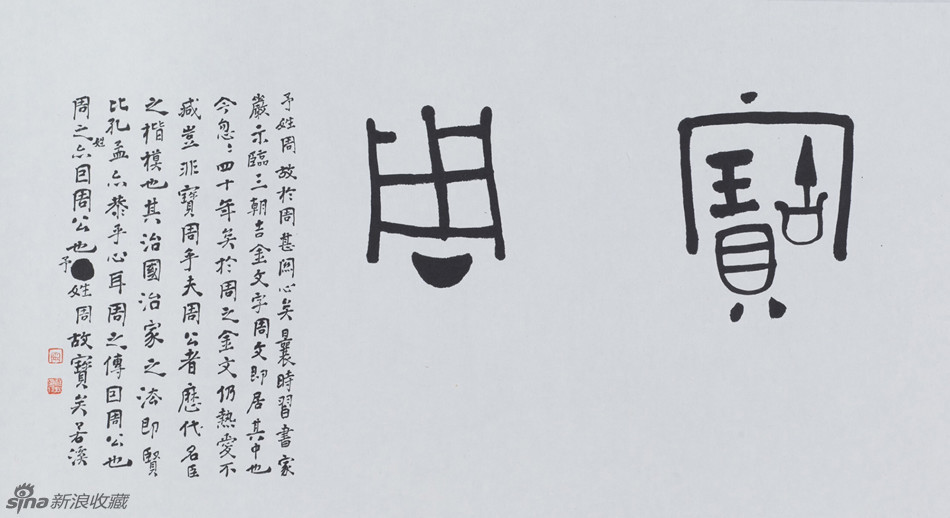 寶周
予姓周故於周甚関心矣曩時習書家
嚴示臨三朝吉金文字周文即居其中也
今忽〻四十年矣於周之金文仍熱愛不
减豈非寶周乎夫周公者歷代名臣
之楷模也其治國治家之法即賢
比孔孟亦恭乎心耳周之傳曰周公也
周之姓亦曰周公也予姓周故寶矣若溪
sina新浪收藏